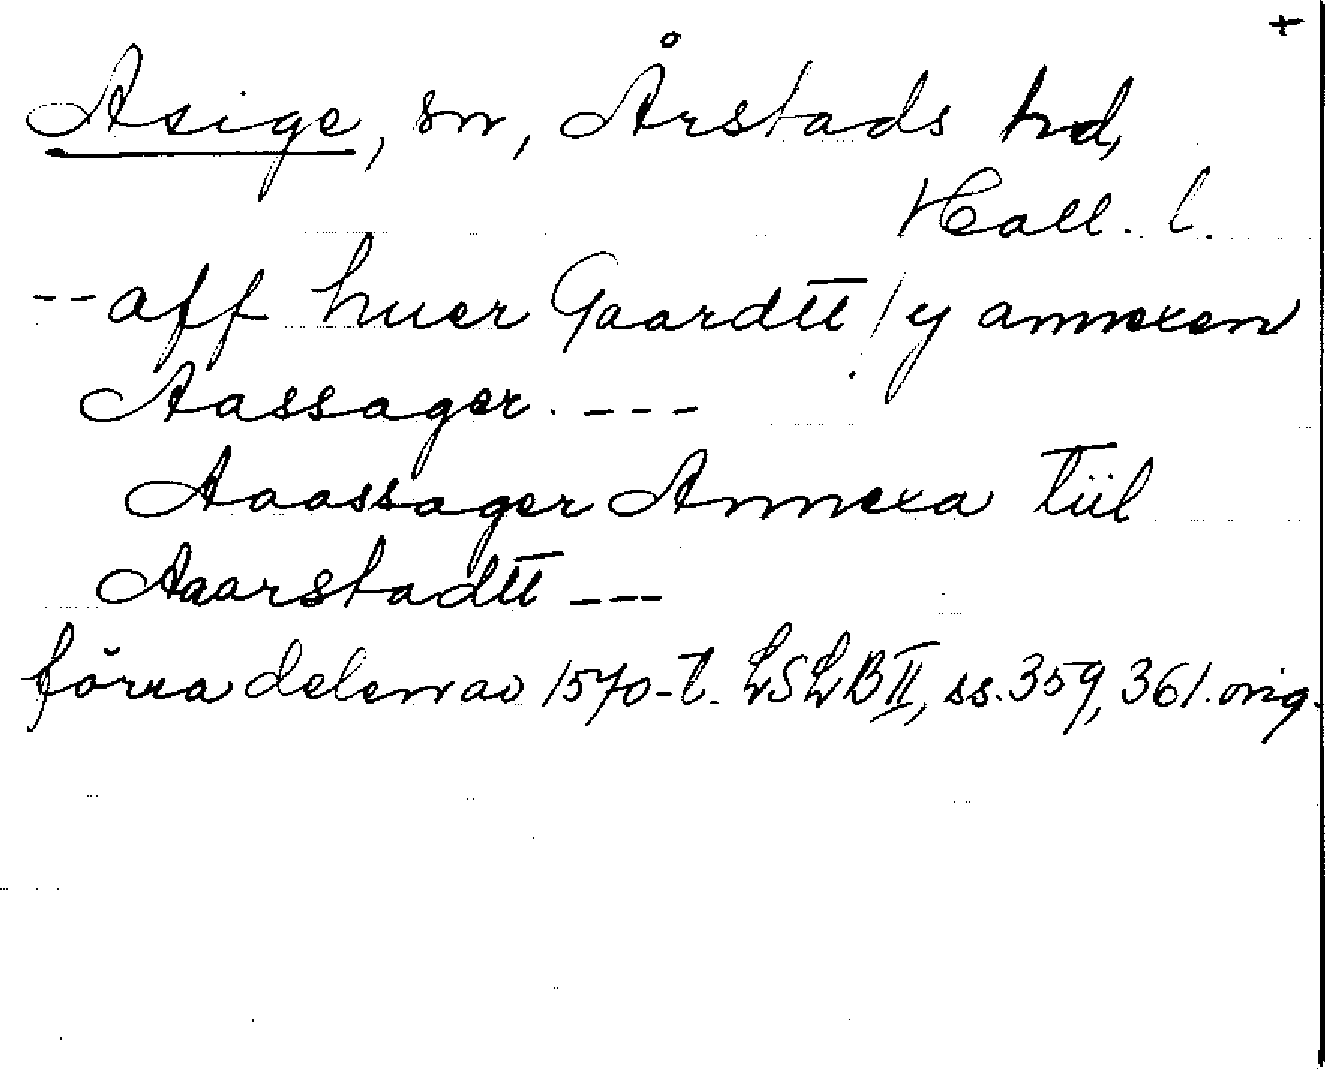 +
Asige, sn, Årstads hd,
Hall. l.
-- aff huer Gaardtt / y annexen
Aassager. ---
Aaossager Annexa Tiil
Aaarstadtt ---
förra delen av 1570-t. LSLB II, ss. 359, 361. orig.